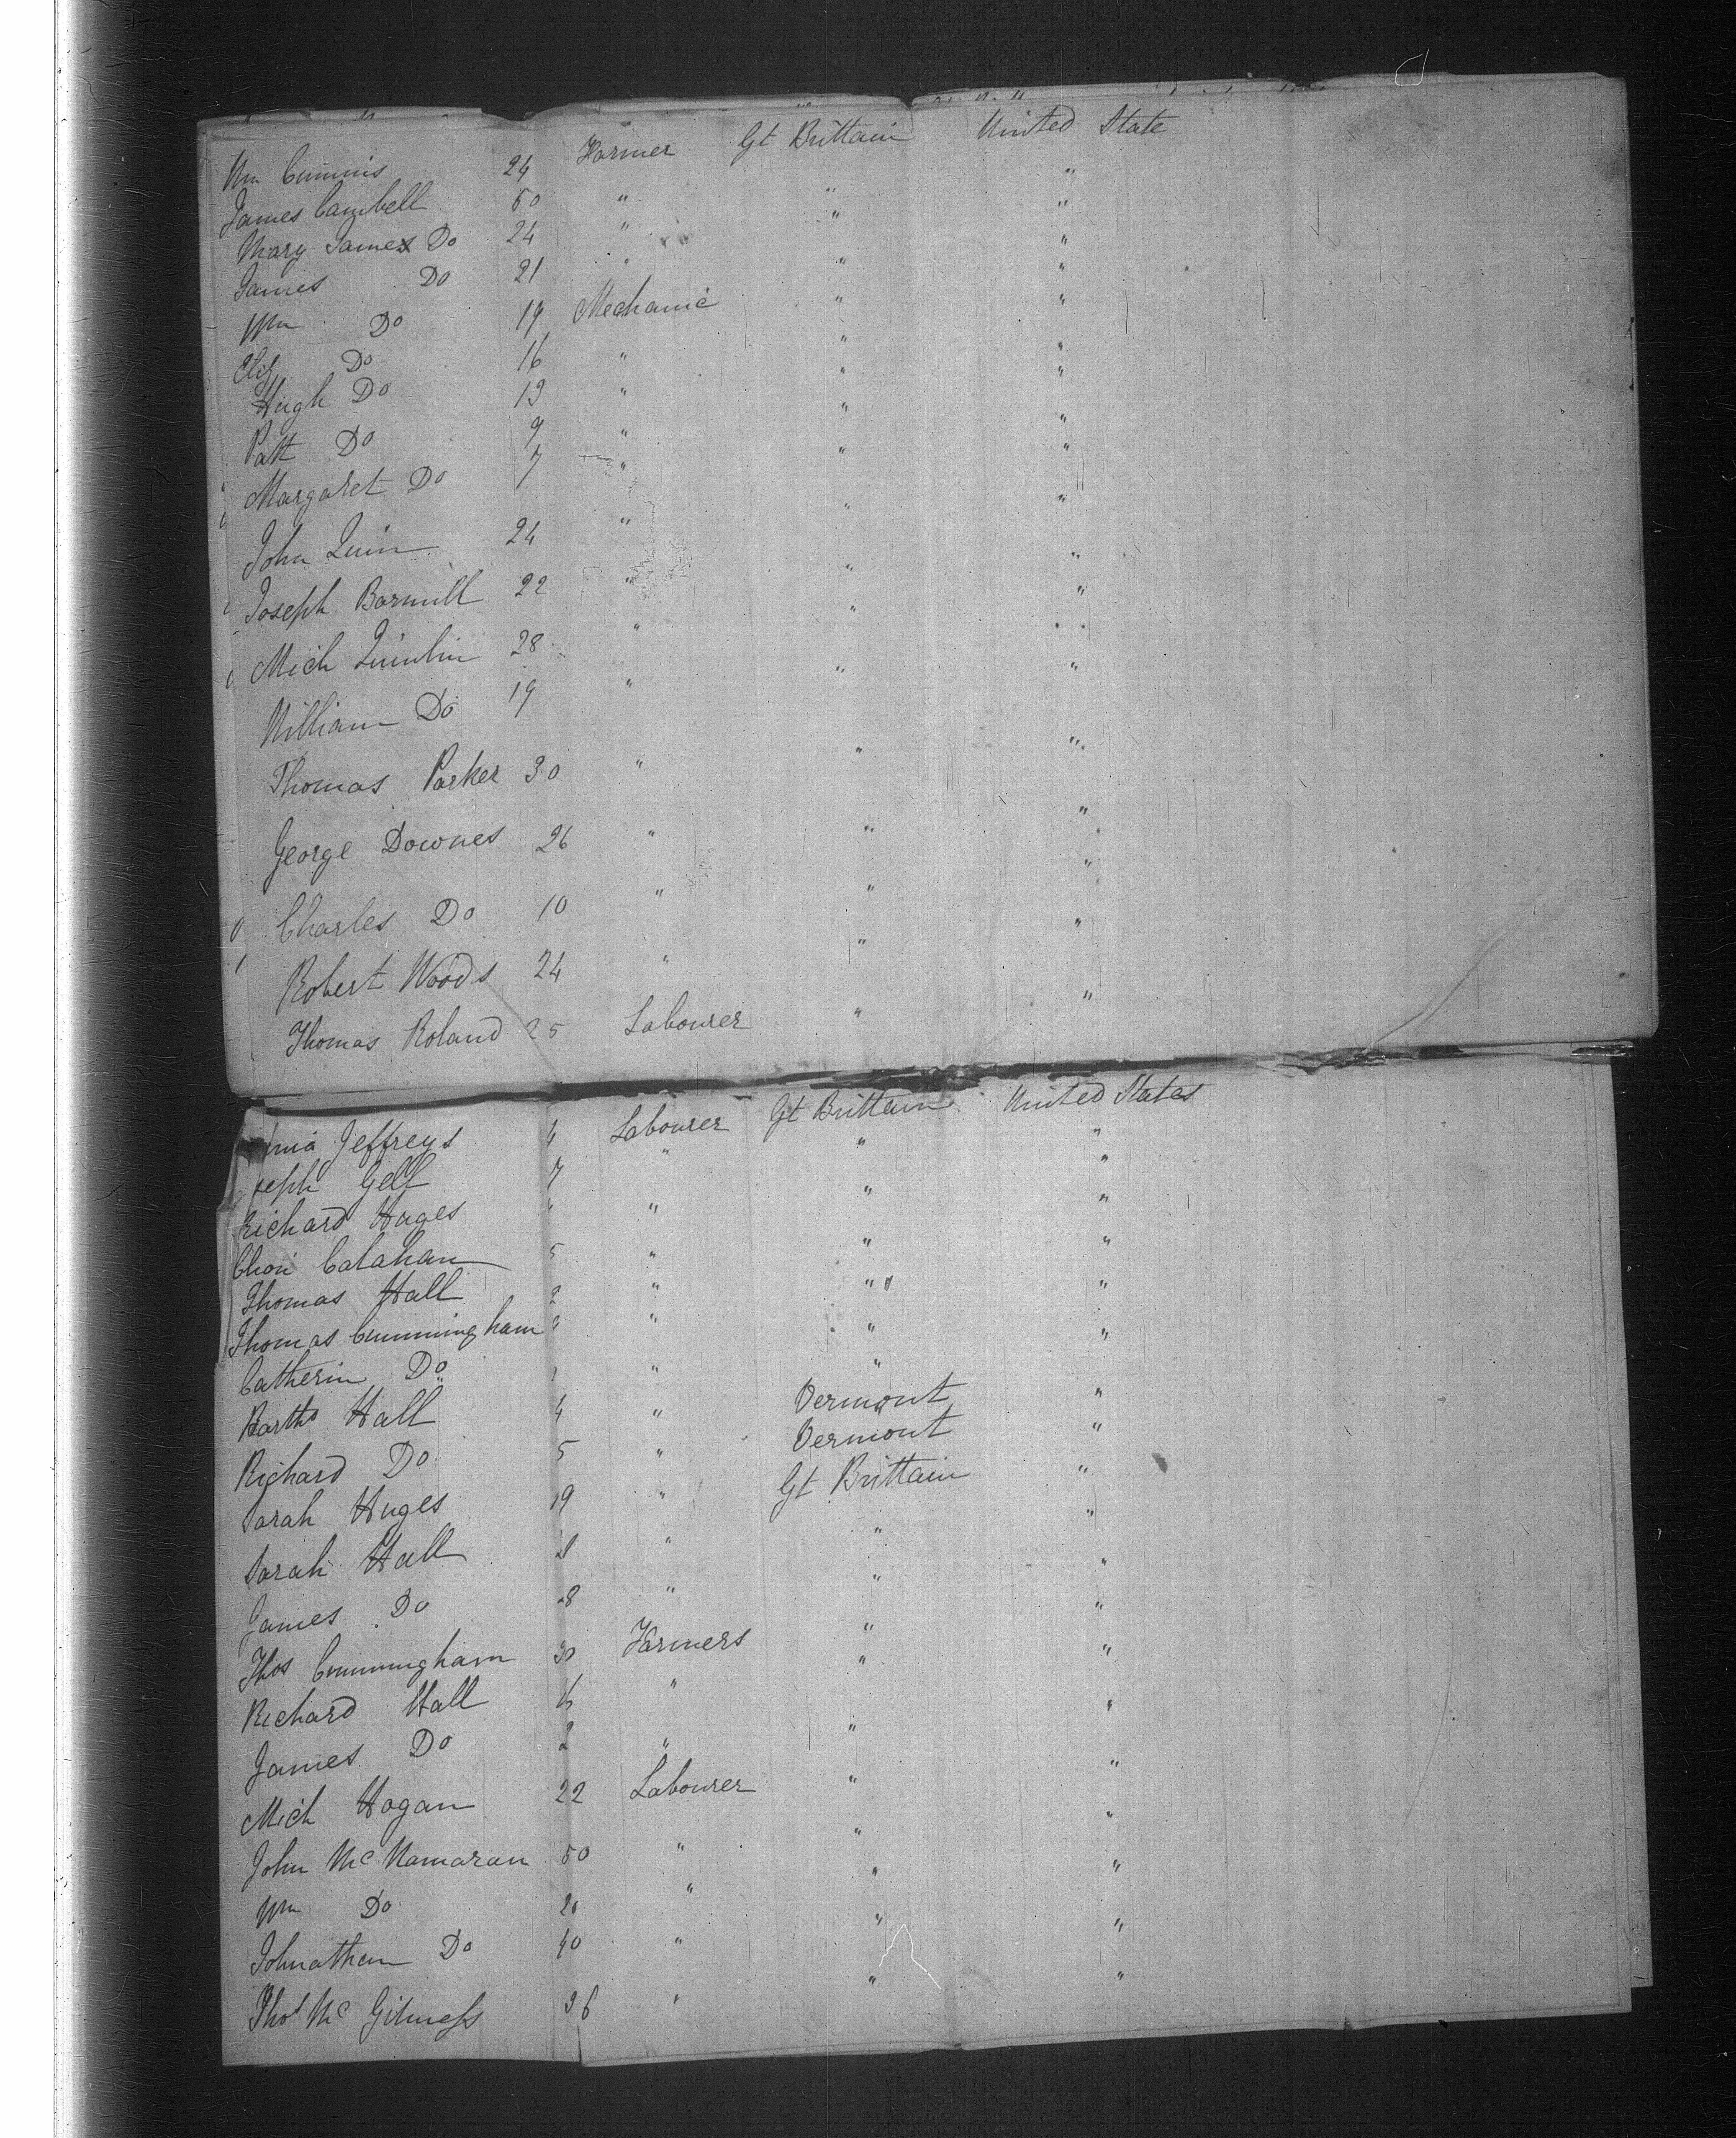 Wm Cummis 24 Farmer Gt Brittain United State
James Campbell 50 " " "
Mary James Do 24 " " "
James Do 21 " " "
Wm Do 19 Mechanic " "
Eliz Do 16 " " "
Hugh Do 13 " " "
Patt Do 9 " " "
Margaret Do 7 " " "
John Quin 24 " " "
Joseph Barmill 22 " " "
Mich Quinlin 28 " " "
William Do 19 " " "
Thomas Parker 30 " " "
George Downes 26 " " "
Charles Do 10 " " "
Robert Woods 24 " " "
Thomas Roland 25 Labourer " "
Jeffreys 4 Labourer Gt Brittain United States
Gell 7 " " "
Richard Huges " " "
Calahan 5 " " "
Thomas Hall 2 " " "
Thomas Cunningham " " "
Catherin Do " " "
Bartho Hall 4 " Vermont "
Richard Do 5 " Vermont "
Sarah Huges 19 " Gt Brittain "
Sarah Hall " " "
James Do 28 " " "
Thos Cunningham 30 Farmers " "
Richard Hall " " "
James Do 2 " " "
Mich Hogan 22 Labourer " "
John McNamaran 50 " " "
Wm Do 20 " " "
Johnathan Do 40 " " "
Thos McGitness 36 " " "